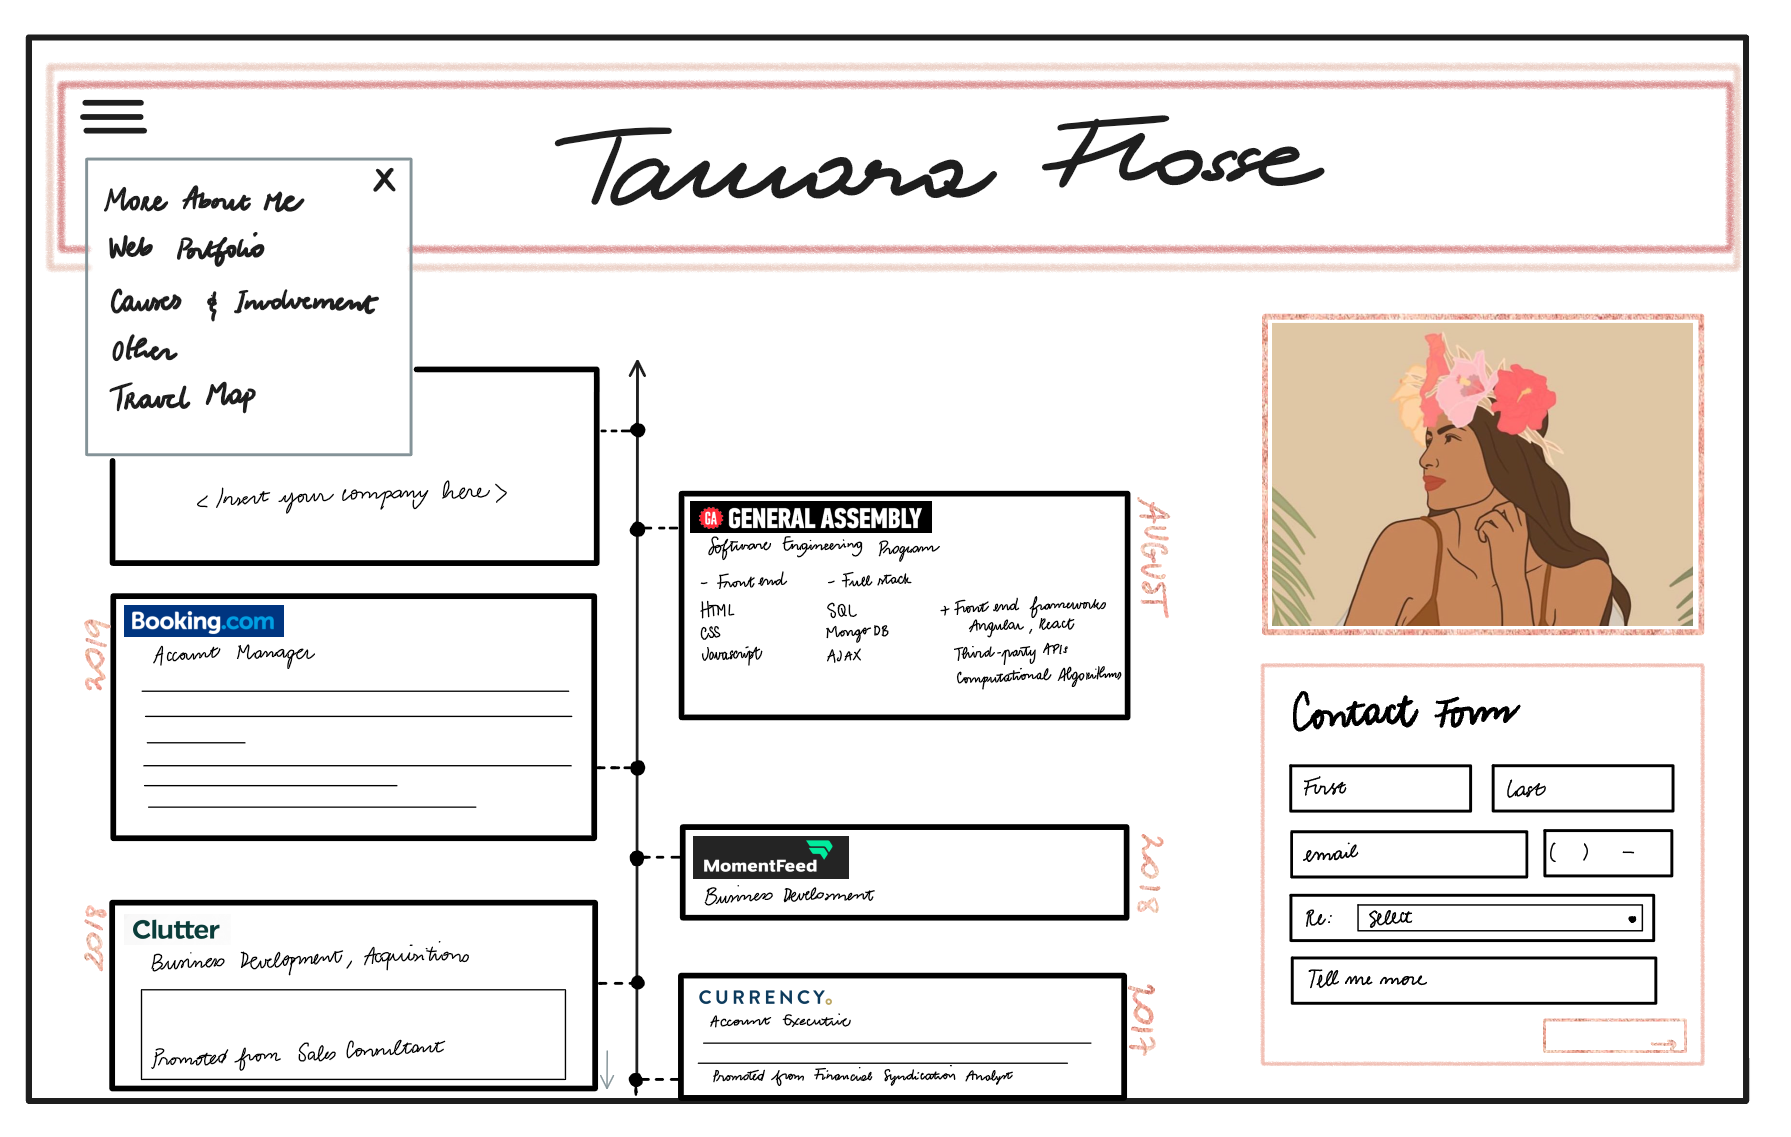 Tamara Flosse
X
More About Me
Web Portfolio
Causes & Involvement
Other
Travel Map
< Insert your company here >
2019
Booking.com
Account Manager
2018
Clutter
Business Development, Acquisitions
Promoted from Sales Consultant
AUGUST
GA GENERAL ASSEMBLY
Software Engineering Program
- Front end
HTML
CSS
Javascript
- Full stack
SQL
Mongo DB
AJAX
+ Front end frameworks
Angular, React
Third-party APIs
Computational Algorithms
2018
MomentFeed
Business Development
2017
CURRENCY
Account Executive
Promoted from Financial Syndication Analyst
Contact Form
First
Last
email
( ) -
Re: Select
Tell me more